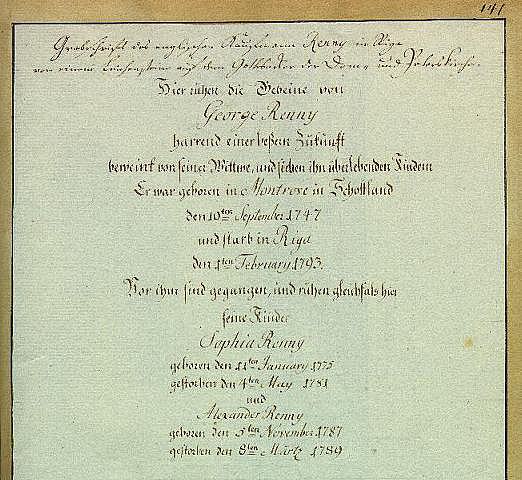 141
Grabschrift des englischen Kaufmann Renny in Riga
von einem Leichenstein auf dem Gottesacker der Dom- und Peterskirche.
Hier ruhen die Gebeine von
George Renny
harrend einer beßern Zukunft
beweint von seiner Wittwe, und sieben ihn überlebenden Kindern
Er war geboren in Montrose in Schottland
den 10ten September 1747
und starb in Riga
den 1ten February 1793.
Vor ihm sind gegangen, und ruhen gleichfals hier
seine Kinder
Sophia Renny
geboren den 11ten January 1775
gestorben den 4ten May 1781
und
Alexander Renny
geboren den 5ten November 1787
gestorben den 8ten Märtz 1789